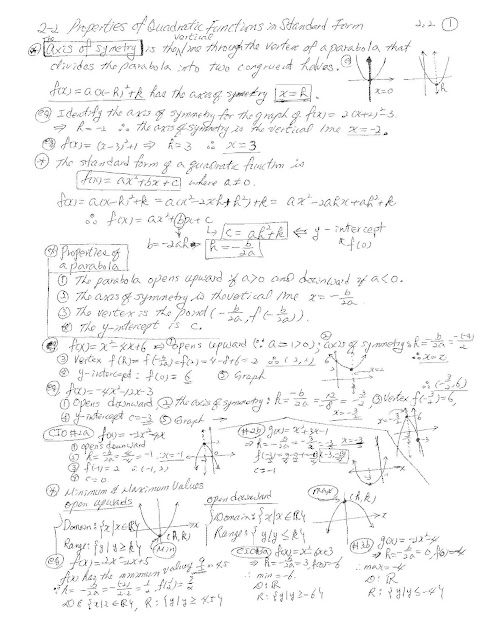 2-2 Properties of Quadratic Functions in Standard Form 2.2 ①
The vertical
Axis of symetry is the line through the vertex of a parabola that
divides the parabola into two congruent halves.
x=0 x=h
f(x) = a(x-h)²+k has the axis of symmetry x=h.
eg Identify the axis of symmetry for the graph of f(x) = 2(x+2)²-3.
⇒ h=-2 ∴ the axis of symmetry is the vertical line x=-2.
f(x) = (x-3)²+1 ⇒ h=3 ∴ x=3
The standard form of a quadratic function is
f(x) = ax²+bx+c where a≠0.
f(x) = a(x-h)²+k = a(x²-2xh+h²)+k = ax²-2ahx+ah²+k
∴ f(x) = ax²+bx+c
c = ah²+k ⇐ y-intercept
b=-2ah h = -b/2a f(0)
Properties of
a parabola
① The parabola opens upward if a>0 and downward if a<0.
② The axis of symmetry is the vertical line x = -b/2a.
③ The vertex is the point (-b/2a, f(-b/2a)).
④ The y-intercept is c.
f(x) = x²-4x+6 ⇒ ① opens upward (∵ a=1>0); ② axis of symmetry is h=-b/2a=-(-4)/2
③ Vertex f(h)= f(-b/2a)=f(2)=4-8+6=2 ∴ (2,2) ∴ x=2
④ y-intercept: f(0)=6 ⑤ Graph
eg f(x) = -4x²-12x-3
① opens downward, ② The axis of symmetry: h=-b/2a=12/-8=-3/2, ③ Vertex f(-3/2)=6, ∴ (-3/2,6)
④ y-intercept c=-3 ⑤ Graph
CIO#2a f(x) = -2x²-4x
① opens downward
② h=-b/2a=4/-4=-1 ∴ x=-1
③ f(-1)=2 ∴ (-1,2)
④ c=0
#2b g(x)=x²+3x-1
⇒ h=-b/2a=-3/2 x=-3/2
c=-1
Minimum & Maximum Values
open upwards open downward
Domain: {x|x∈R} Domain: {x|x∈R}
Range: {y|y≥k} Range: {y|y≤k}
(h,k) min max (h,k)
eg f(x) = 2x²-2x+5
f(x) has the minimum value 9/2=4.5
∴ h=-b/2a=-(-2)/2·2=1/2, f(1/2)=9/2
D: {x|x∈R}, R: {y|y≥4.5}
CIO#3a f(x)=x²-6x+3
⇒ h=-b/2a=3, f(3)=-6
∴ min=-6.
D: R
R: {y|y≥-6}
#3b g(x)=-2x²-4
⇒ h=-b/2a=0, f(0)=-4
∴ max=-4
D: R
R: {y|y≤-4}